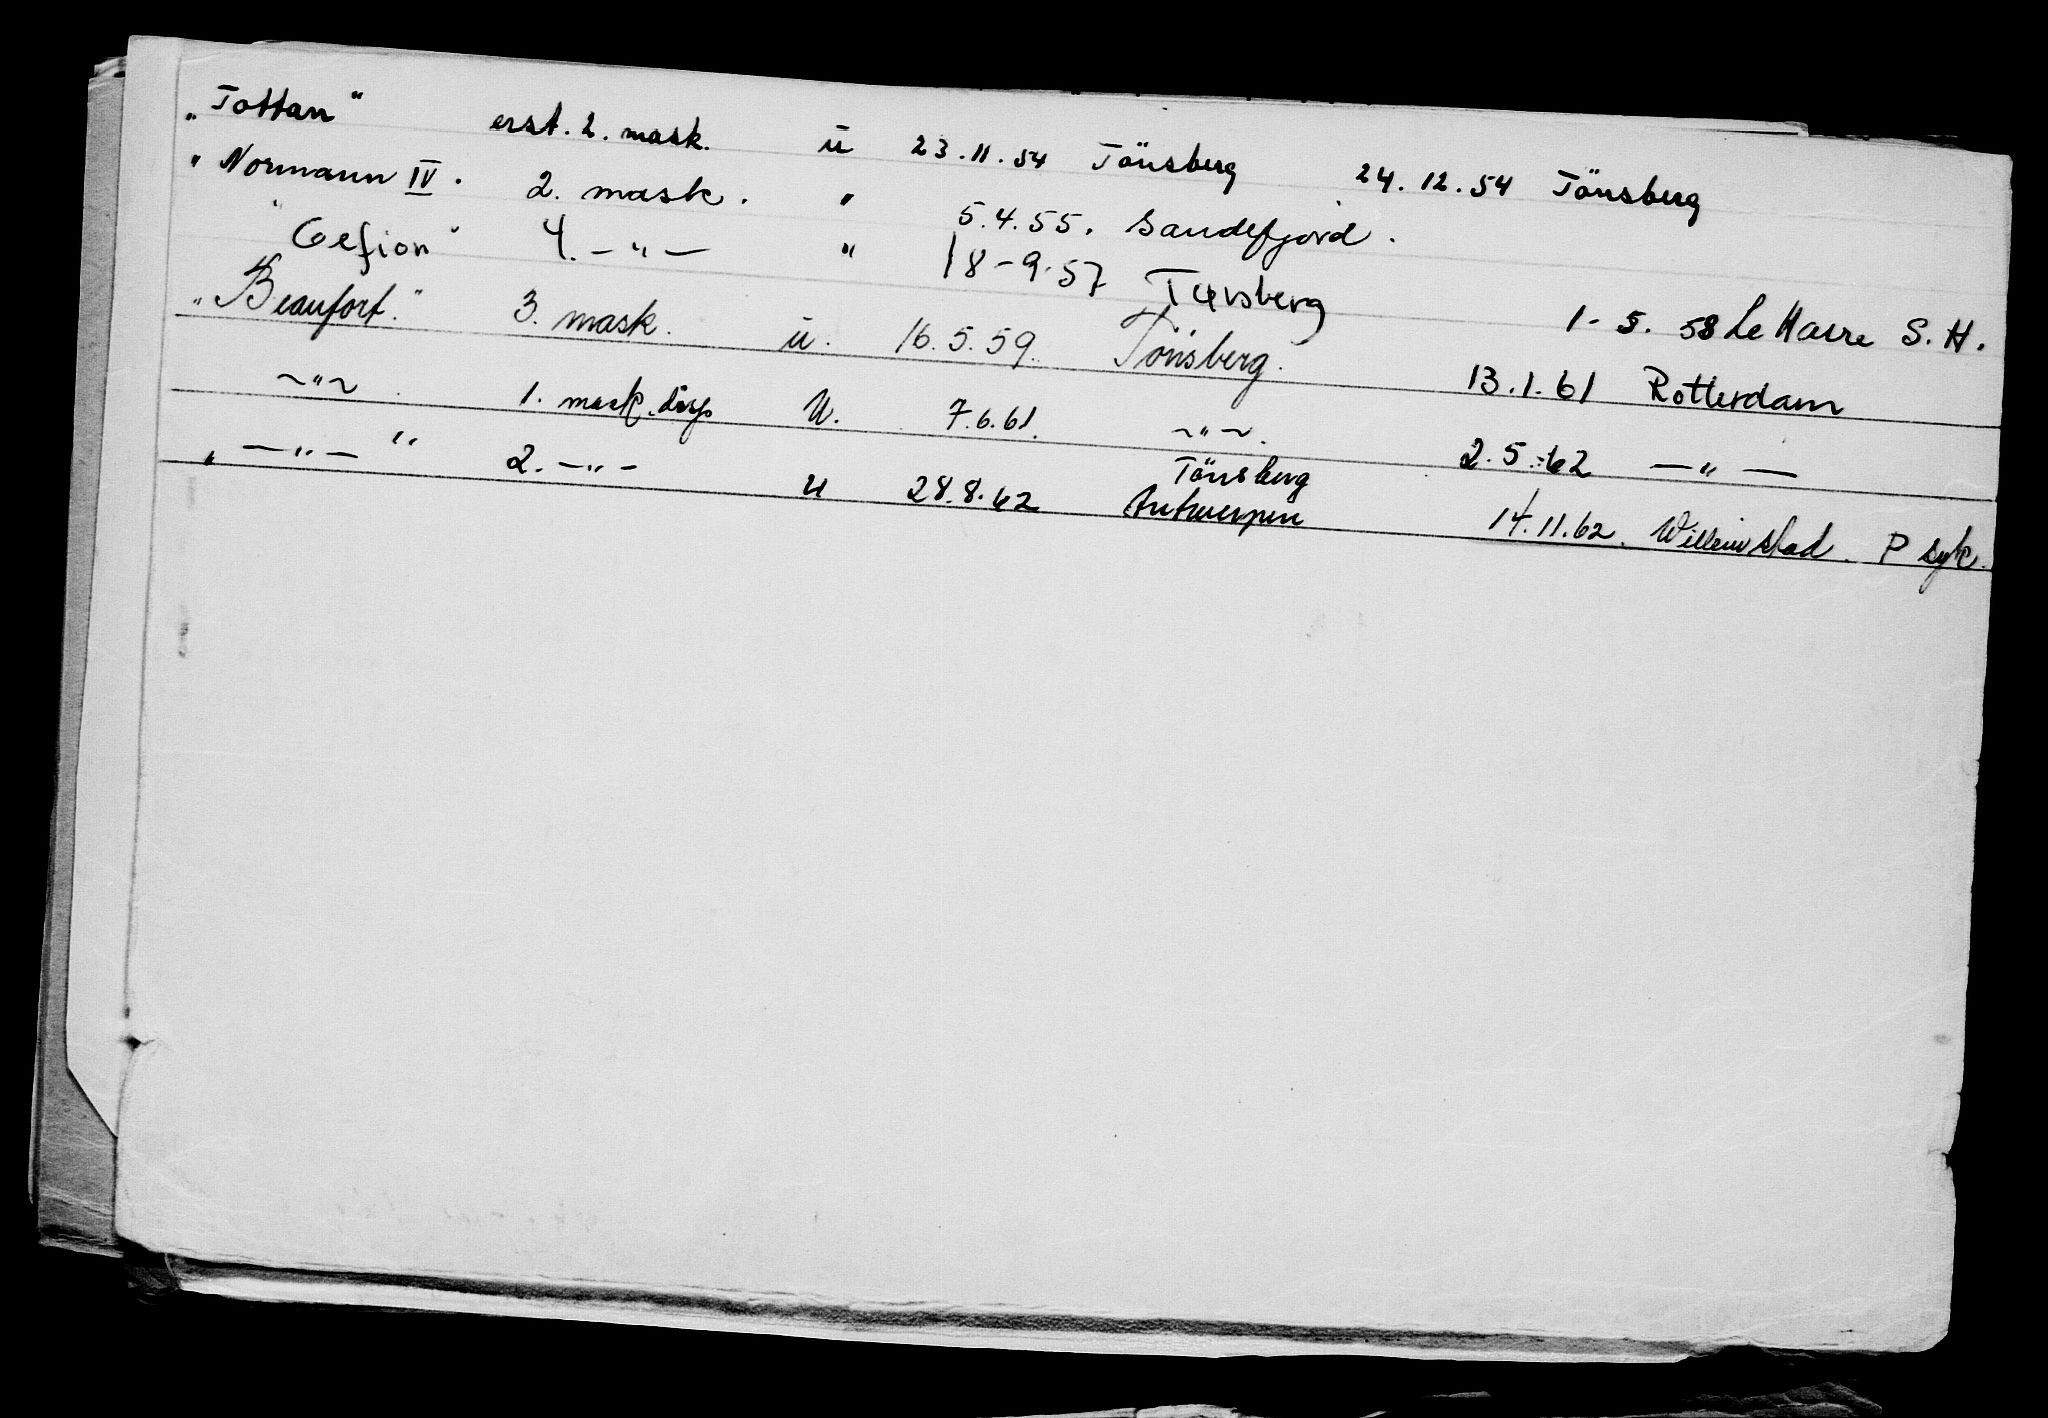 „Tottan" erst. 2. mask. u 23.11.54 Tönsberg 24.12.54 Tönsberg
"Normann IV. 2. mask. " 5.4.55. Sandefjord.
"Gefion" 4. -"- " 18-9-57 Tønsberg 1-5. 58 Le Havre S. H.
„Beaufort." 3. mask. u. 16.5.59. Tönsberg. 13.1.61 Rotterdam
~"~ . 1. mask. disp U. 7.6.61. ~"~. 2.5.62 -"-
„ -"- " 2. -"- u 28.8.62 Tönsberg Antwerpen 14.11.62. Willemstad. P syk.